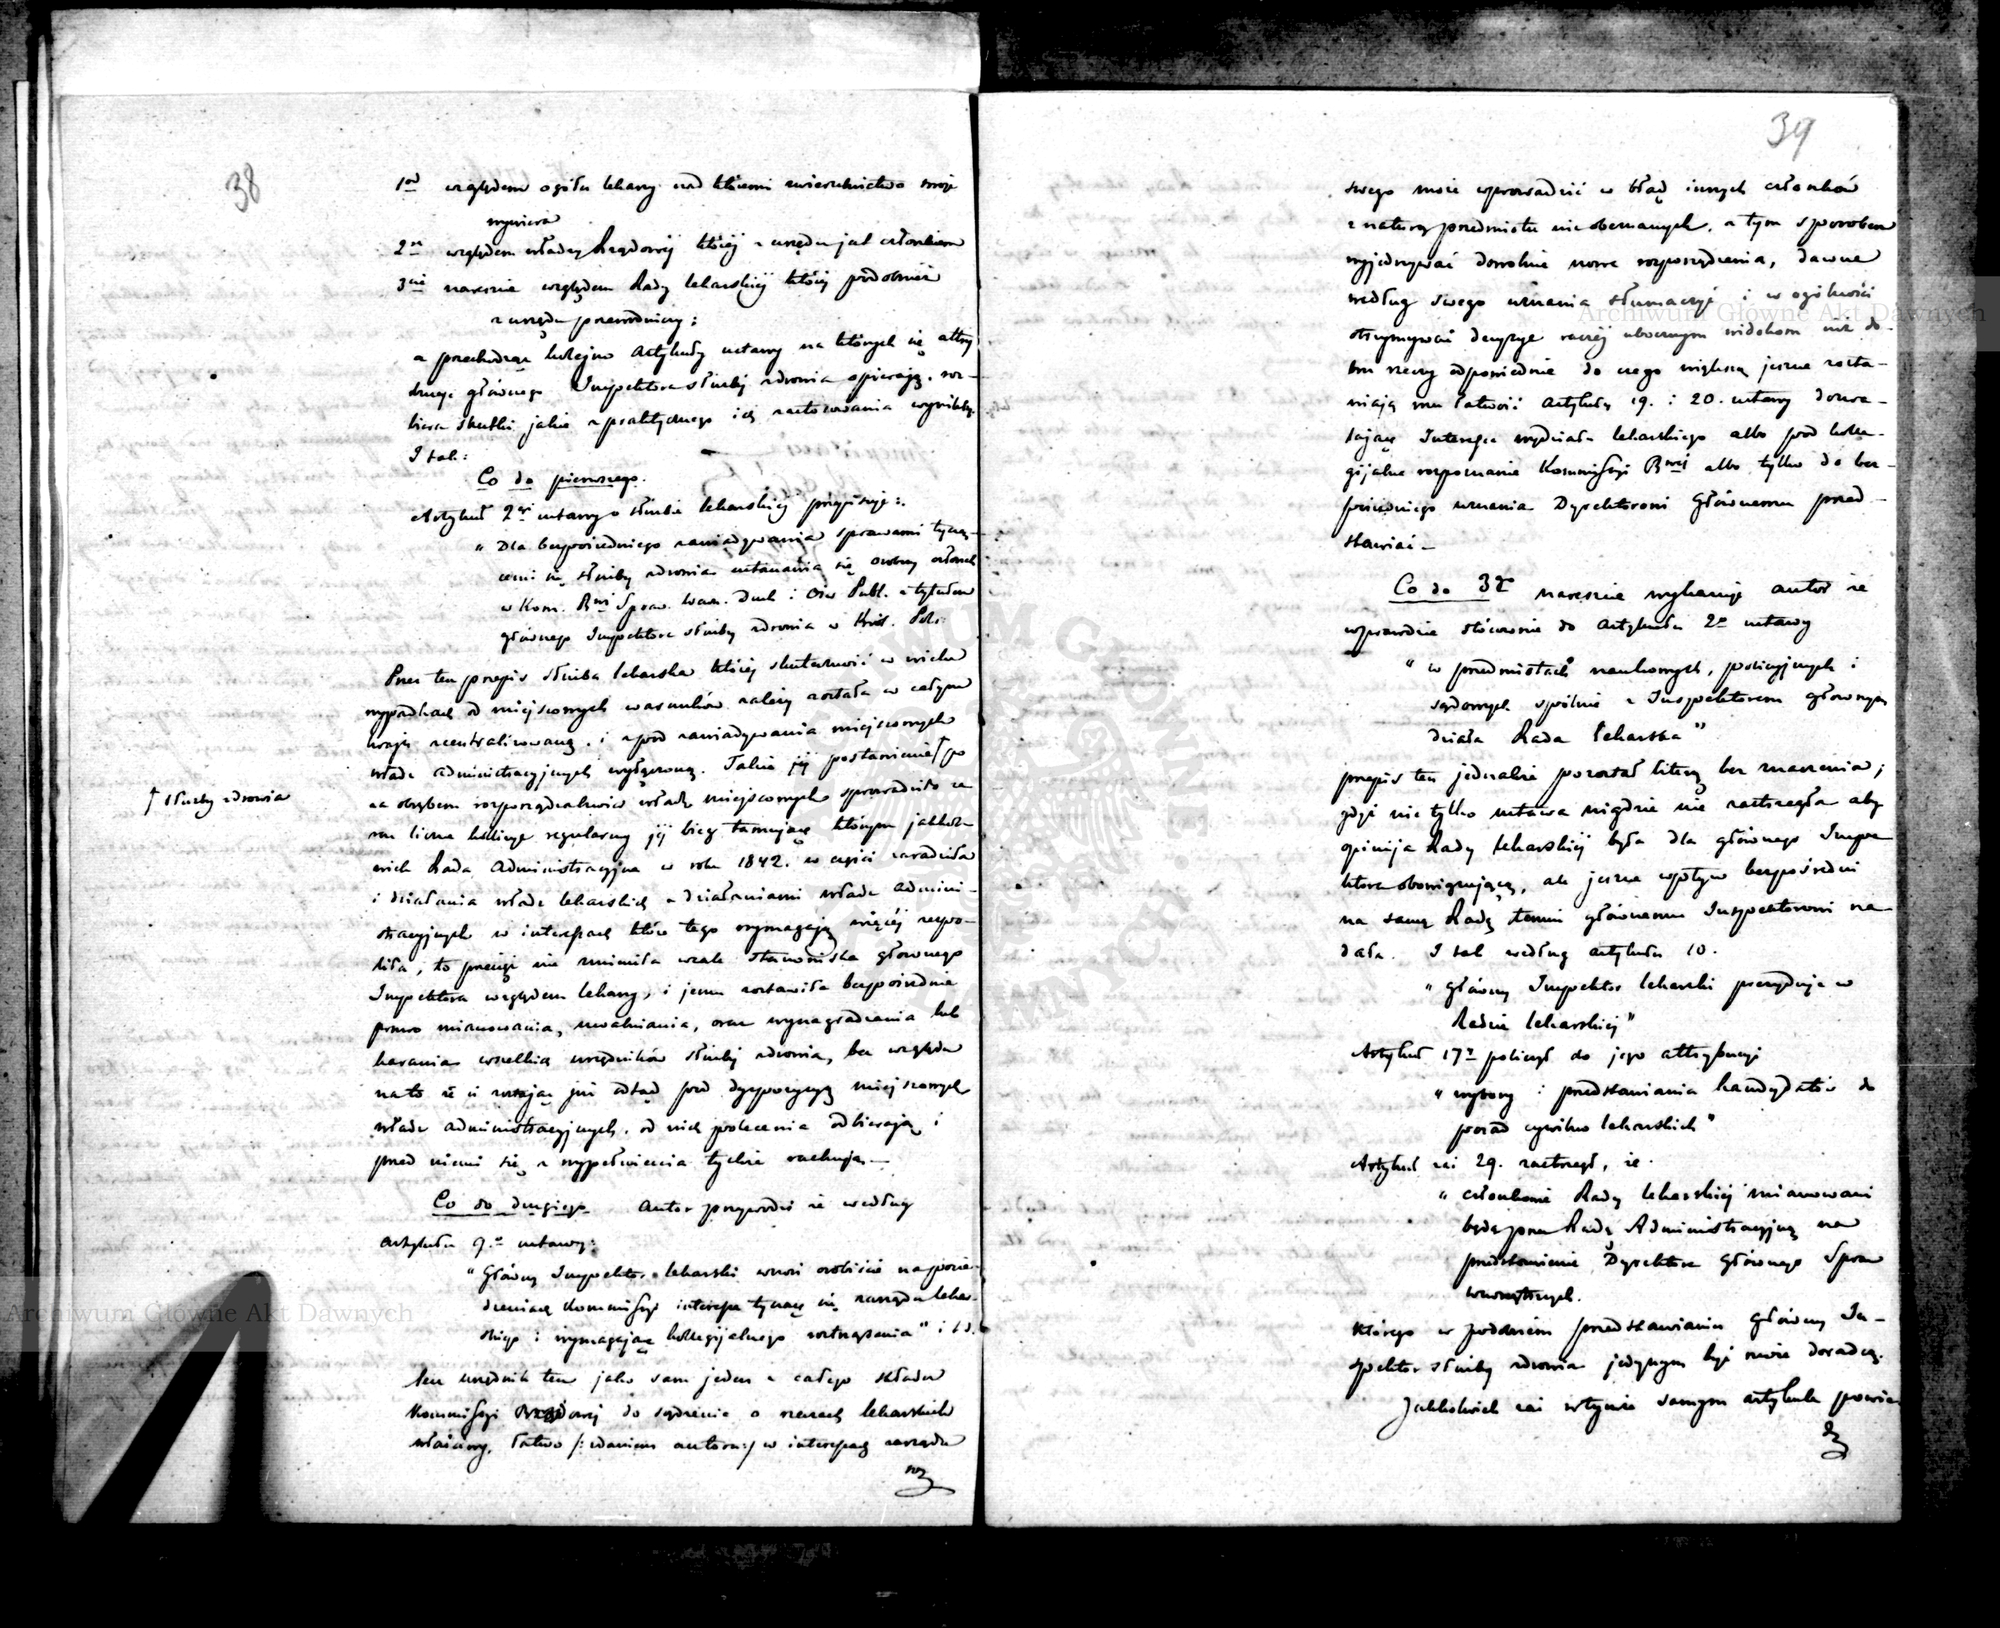 38
1od względem ogółu lekarzy nad któremi zwierzchnictwo swoje
wywiera
2re względem władzy Rządowej której z urzędu jest członkiem
3cie nareszcie względem Rady lekarskiej której podobnież
z urzędu przewodniczy;
a przechodząc kolejno Artykuły ustawy na których się attry
bucye głównego Inspektora służby zdrowia opierają, roz-
biera skutki jakie z praktycznego ich zastosowania wynikły.
I tak:
Co do pierwszego.
Artykuł 2gi ustawy o służbie lekarskiej przepisuje:
„ Dla bezpośredniego zawiadywania sprawami tyczą-
cemi się służby zdrowia ustanawia się osobny członek
w Kom. Rwej Spraw. Wewn. Duch i Ośw Publ. z tytułem
głównego Inspektora służby zdrowia w Król. Pols.
Przez ten przepis służba lekarska której skuteczność w wielu
wypadkach od miejscowych warunków zależy została w całym
kraju scentralizowaną, i z pod zawiadywania miejscowych
władz administracyjnych wyłączoną. Takie jej postawienie † po
za obrębem rozporządzalności władz miejscowych sprowadziło ze
† służby zdrowia
sou liczne kollizye regularny jej bieg tamujące którym jakkol-
wiek Rada Administracyjna w roku 1842. w części zaradziła
i działania władz lekarskich z działaniami władz admini-
stracyjnych w interesach które tego wymagają więcej zespo-
liła, to przecież nie zmieniła wcale stanowiska głównego
Inspektora względem lekarzy, i jemu zostawiła bezpośrednie
prawo mianowania, uwalniania, oraz wynagradzania lub
karania wszelkich urzędników służby zdrowia, bez względu
na to że ci zostając już odtąd pod dyspozycyą miejscowych
władz administracyjnych, od nich polecenia odbierają i
przed niemi się z wypełnienia tychże rachują.—
Co do drugiego Autor przywodzi że według
artykułu 9.o ustawy:
„ Główny Inspektor lekarski wnosi osobiście na posie-
dzeniach Kommissyi interessa tyczące się zarządu lekar-
skiego i wymagające kollegijalnego roztrząsania" i t.d.
lecz urzędnik ten jako sam jeden z całego składu
Kommissyi Rządowej do sądzenia o rzeczach lekarskich
właściwy, łatwo /: zdaniem autora :/ w interesach zarządu
39
swego może wprowadzić w błąd innych członków
z naturą przedmiotu nieobeznanych, a tym sposobem
wyjednywać dowolnie nowe rozporządzenia, dawne
według swego uznania tłumaczyć i w ogólności
otrzymywać decyzye raczej ubocznym widokom niż do-
bru rzeczy odpowiednie do czego większą jeszcze zosta-
wiają mu łatwość Artykuły 19. i 20. ustawy dozwa-
lając Interessa wydziału lekarskiego albo pod kolle-
gijalne rozpoznanie Kommissyi Rwej albo tylko do bez-
pośredniego uznania Dyrektorowi Głównemu przed-
stawiać —
Co do 3o nareszcie wykazuje autor że
wprawdzie stósownie do Artykułu 2o ustawy
„ w przedmiotach naukowych, policyjnych i
sądowych spólnie z Inspektorem głównym
działa Rada lekarska"
przepis ten jednakże pozostał literą bez znaczenia;
gdyż nie tylko ustawa nigdzie nie zastrzegła aby
opinija Rady lekarskiej była dla głównego Inspe-
ktora obowiązującą, ale jeszcze wpływ bezpośredni
na samą Radę temuż głównemu Inspektorowi na-
dała. I tak według artykułu 10.
„ główny Inspektor lekarski prezyduje w
Radzie lekarskiej"
Artykuł 17y policzył do jego attrybucyi
„ wybory i przedstawiania kandydatów do
posad cywilno lekarskich"
Artykuł zaś 29. zastrzegł, że.
„ członkowie Rady lekarskiej mianowani
będą przez Radę Administracyjną na
przedstawienie Dyrektora Głównego Spraw
wewnętrznych.
którego w podobnem przedstawianiu główny In-
spektor służby zdrowia jedynym być może doradcą.
Jakkolwiek zaś w tymże samym artykule powie